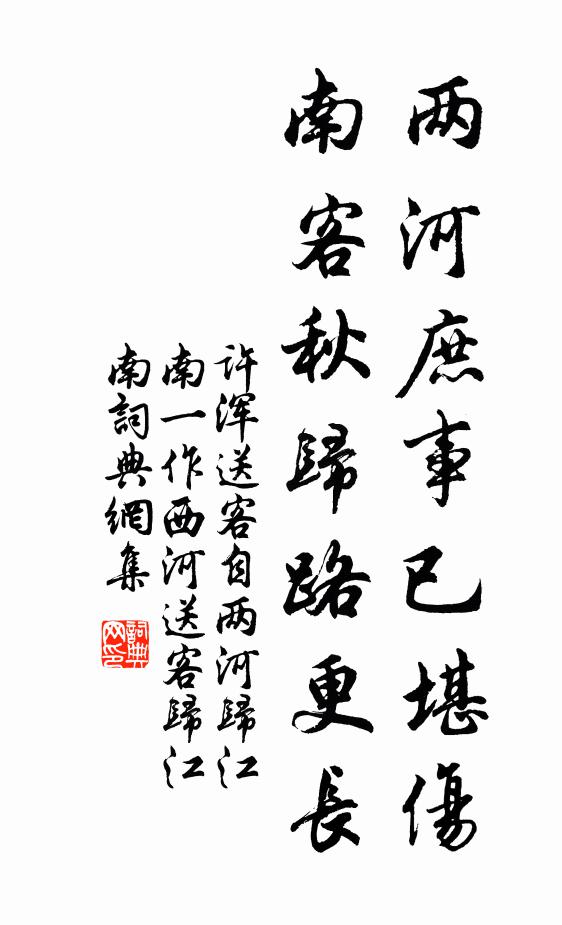 两河庶事已堪傷
南客秋歸路更長
许浑送客自两河歸江
南一作西河送客歸江
南詞典網集
詞典网印